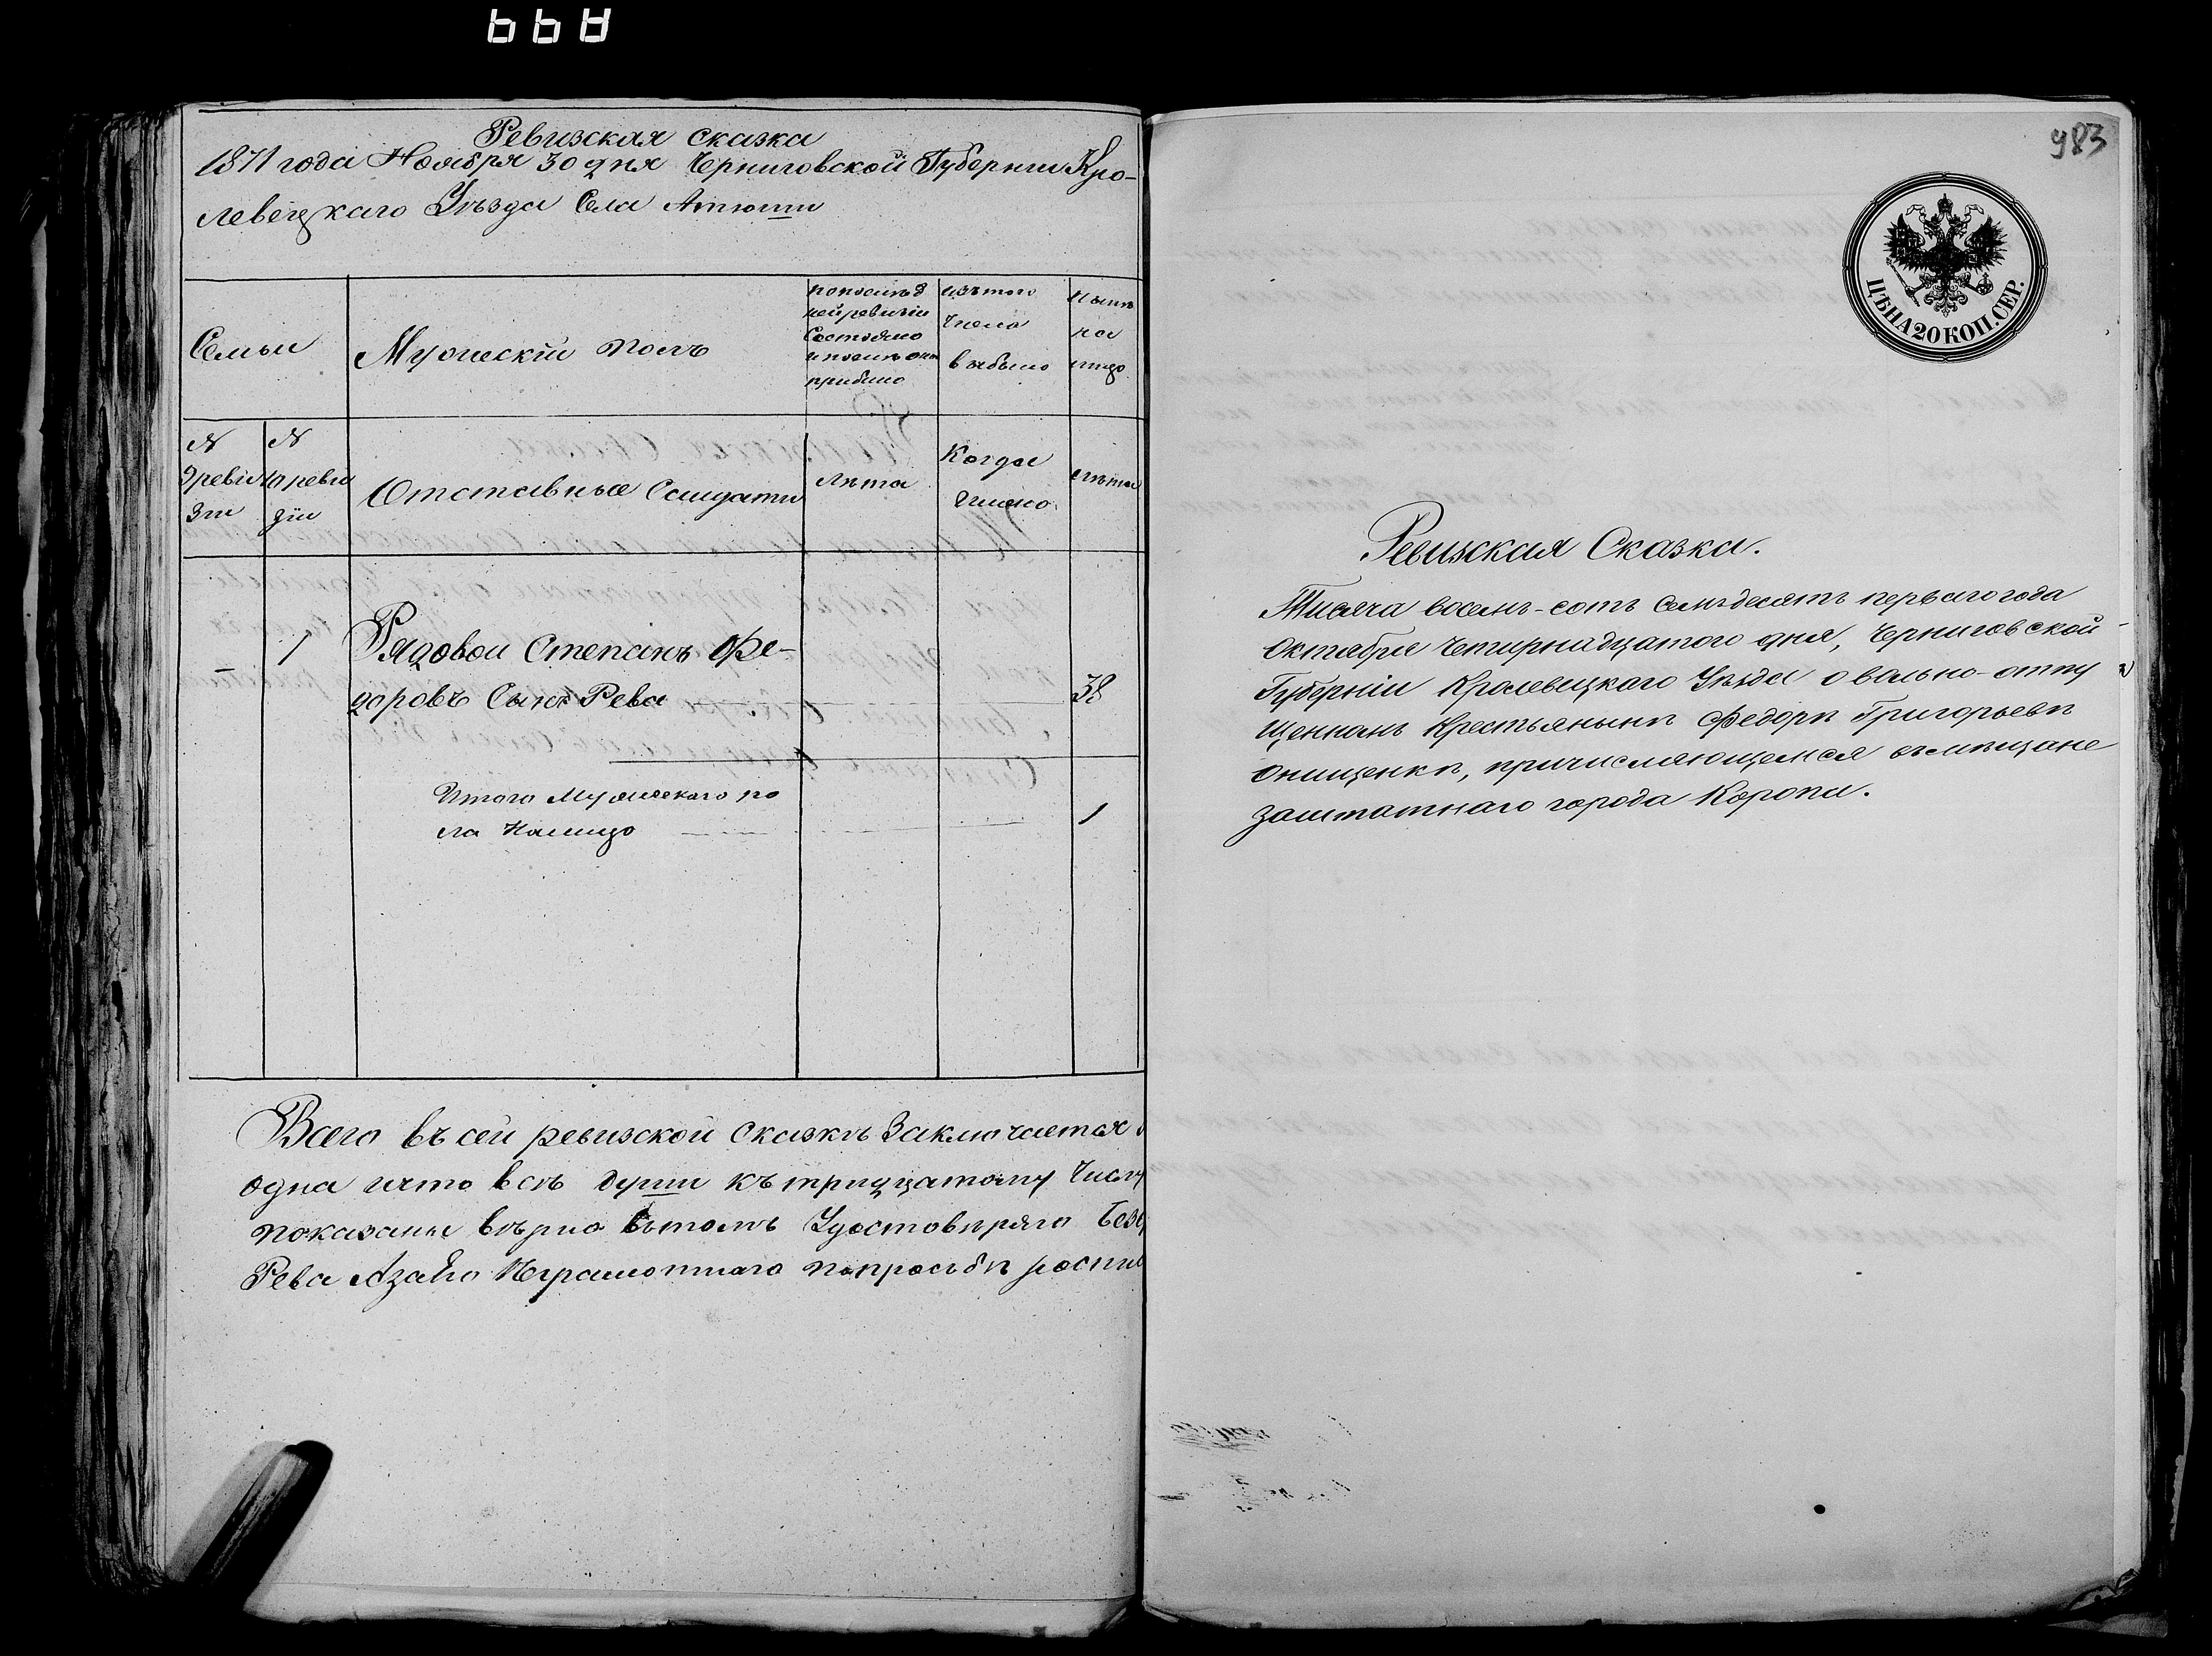 Ревизская сказка
1871 года Ноября 30 дня Черниговской Губернии Кро-
левецкаго Уѣзда Села Атюши
Семьи
Мужескій полъ
по послѣд
ней ревизіи
Состояло
и послѣ онй
прибыло
изъ того
числа
выбыло
Нынѣ
на
лицо
№
9 реви
зіи
№
10 реви
зіи
Отставные Солдаты
лѣта
Когда
имено
лѣта
–
1
Рядовой Степанъ Фе-
доровъ Сынъ Рева
38
Итого Мужескаго по
ла Налицо
1
Всего въ сей ревизской сказкѣ Заключается
одна и что всѣ души къ тридцатому Числу
показаны вѣрно въ томъ Удостовѣряю
Рева А за Его Неграмотнаго по прозьбѣ роспи
983
ЦѢНА 20 КОП. СЕР.
Ревизская Сказка.
Тысяча восемь-сотъ семьдесятъ перваго года
Октября Четырнадцатого дня, Черниговской
Губерніи Кролевецкаго Уѣзда о вольно-отпу
щенномъ Крестьянынѣ Федорѣ Григорьевѣ
Онищенкѣ, причисляющемся въ мѣщане
заштатнаго города Коропа.